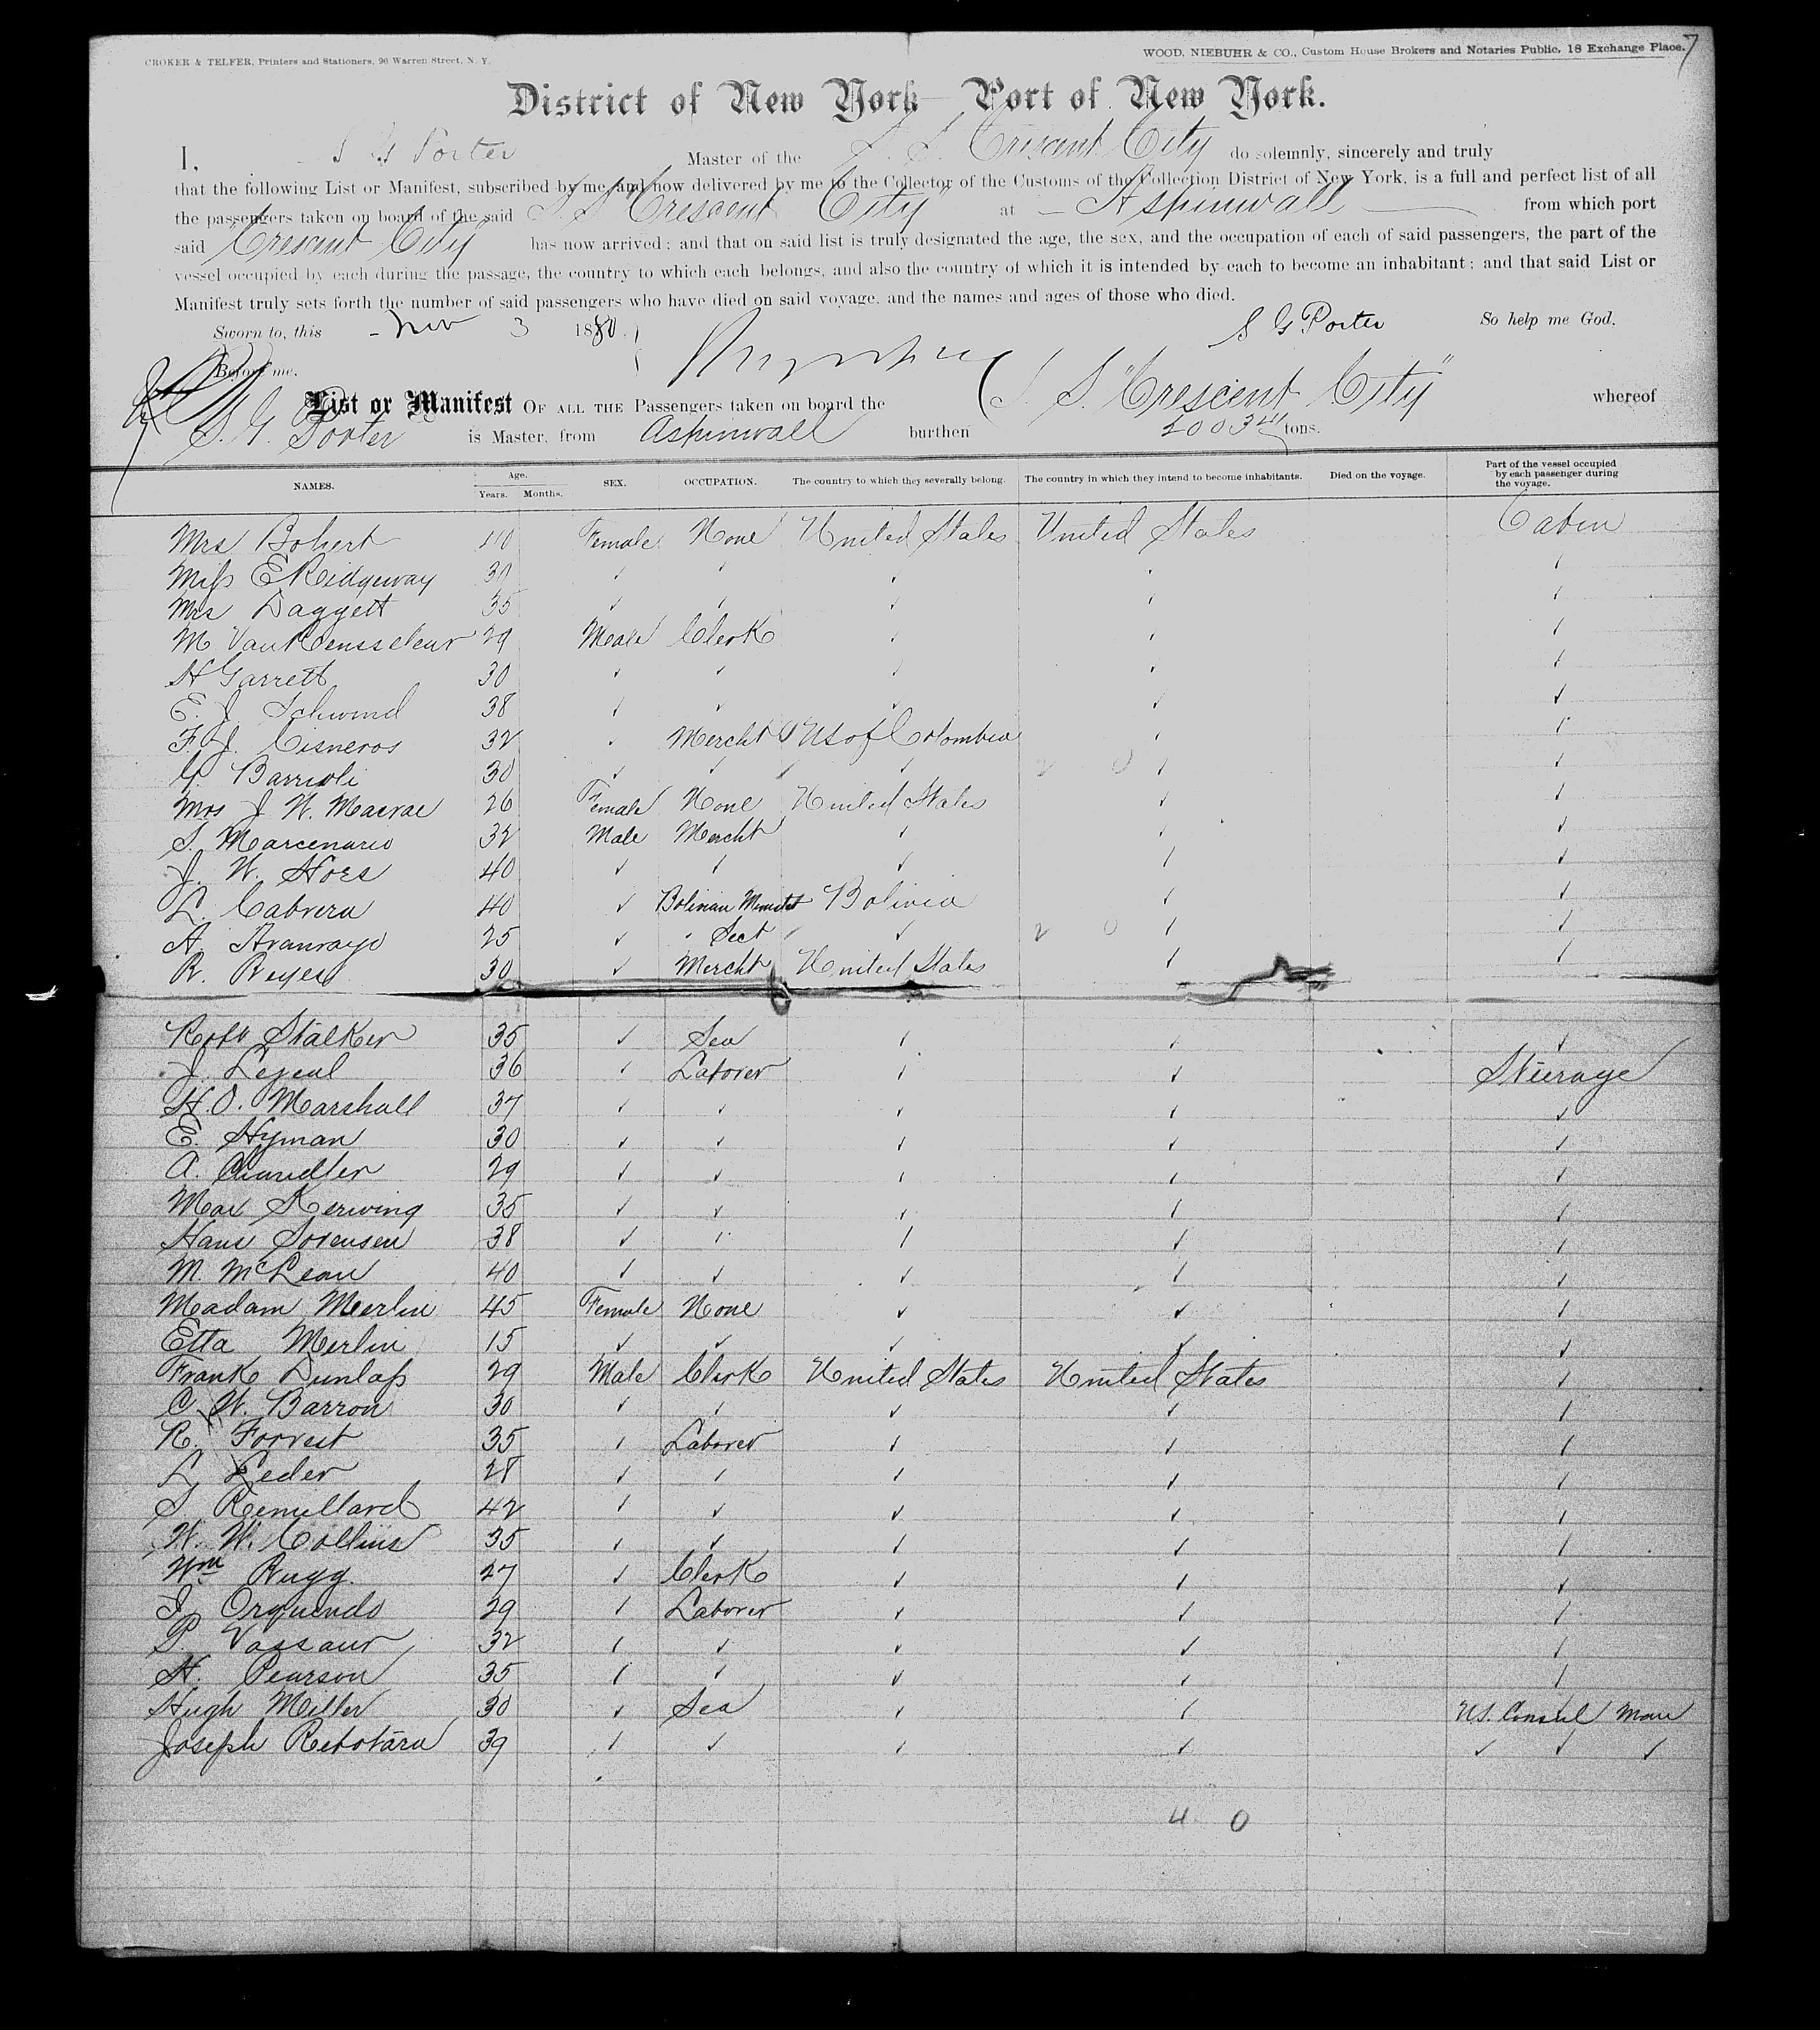 CROKER & TELFER, Printers and Stationers, 96 Warren Street, N. Y.
WOOD, NIEBUHR & CO., Custom House Brokers and Notaries Public, 18 Exchange Place. 7
District of New York—Port of New York.
I, S G Porter Master of the S. S. Crescent City do solemnly, sincerely and truly
that the following List or Manifest, subscribed by me and now delivered by me to the Collector of the Customs of the Collection District of New York, is a full and perfect list of all
the passengers taken on board of the said S S "Crescent City" at — Aspinwall — from which port
said "Crescent City" has now arrived; and that on said list is truly designated the age, the sex, and the occupation of each of said passengers, the part of the
vessel occupied by each during the passage, the country to which each belongs, and also the country of which it is intended by each to become an inhabitant; and that said List or
Manifest truly sets forth the number of said passengers who have died on said voyage, and the names and ages of those who died.
Sworn to, this Nov 3 1880. S G Porter So help me God.
Before me.
List or Manifest OF ALL THE Passengers taken on board the S. S. "Crescent City" whereof
S. G. Porter is Master, from Aspinwall burthen 2003 tons.
NAMES. Age. Years. Months. SEX. OCCUPATION. The country to which they severally belong. The country in which they intend to become inhabitants. Died on the voyage. Part of the vessel occupied by each passenger during the voyage.
Mrs Bohert 40 Female None United States United States Cabin
Miss E Ridgeway 30 ✓ ✓ ✓ ✓ ✓
Mrs Daggett 35 ✓ ✓ ✓ ✓ ✓
M Van Rensselear 29 Male Clerk ✓ ✓ ✓
H Garrett 30 ✓ ✓ ✓ ✓ ✓
E. J. Schwind 38 ✓ ✓ ✓ ✓ ✓
F. J. Cisneros 32 ✓ Mercht US of Colombia ✓ ✓
G. Barrioli 30 ✓ ✓ ✓ ✓ 2 0 ✓ ✓
Mrs J. W. Macrae 26 Female None United States ✓ ✓
S. Marcenario 32 Male Mercht ✓ ✓ ✓
J. W. Hoes 40 ✓ ✓ ✓ ✓ ✓
L. Cabrera 40 ✓ Bolivian Minister Bolivia ✓ ✓
A. 25 ✓ " Sect " ✓ 2 0 ✓ ✓
R. Reyes 30 ✓ Mercht United States ✓ ✓
Robt Stalker 35 ✓ Sea ✓ ✓ ✓
J. Lejeal 36 ✓ Laborer ✓ ✓ Steerage
H. O. Marshall 37 ✓ ✓ ✓ ✓ ✓
E. Hyman 30 ✓ ✓ ✓ ✓ ✓
A. Chandler 29 ✓ ✓ ✓ ✓ ✓
Max Kerwing 35 ✓ ✓ ✓ ✓ ✓
Hans Sorensen 38 ✓ ✓ ✓ ✓ ✓
M. McLean 40 ✓ ✓ ✓ ✓ ✓
Madam Merlin 45 Female None ✓ ✓ ✓
Etta Merlin 15 ✓ ✓ ✓ ✓ ✓
Frank Dunlap 29 Male Clerk United States United States ✓
C. W. Barron 30 ✓ ✓ ✓ ✓ ✓
R. Forrest 35 ✓ Laborer ✓ ✓ ✓
L. Leder 28 ✓ ✓ ✓ ✓ ✓
S. Remillard 42 ✓ ✓ ✓ ✓ ✓
W. W. Collins 35 ✓ ✓ ✓ ✓ ✓
Wm Rugg. 27 ✓ Clerk ✓ ✓ ✓
J. Orquendo 29 ✓ Laborer ✓ ✓ ✓
P. Vassaur 32 ✓ ✓ ✓ ✓ ✓
H. Pearson 35 ✓ ✓ ✓ ✓ ✓
Hugh Miller 30 ✓ Sea ✓ ✓ US. Consul Man
Joseph Rebotaru 39 ✓ ✓ ✓ ✓ ✓ ✓ ✓
4 0